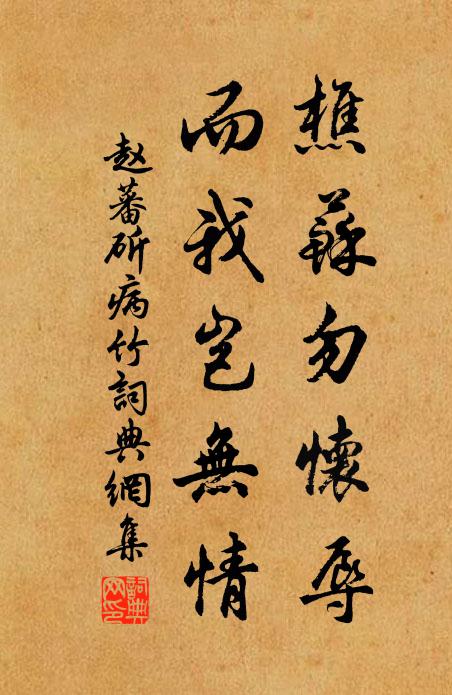 樵蘇勿懷辱
而我豈無情
赵蕃斫病竹詞典網集
詞典網印